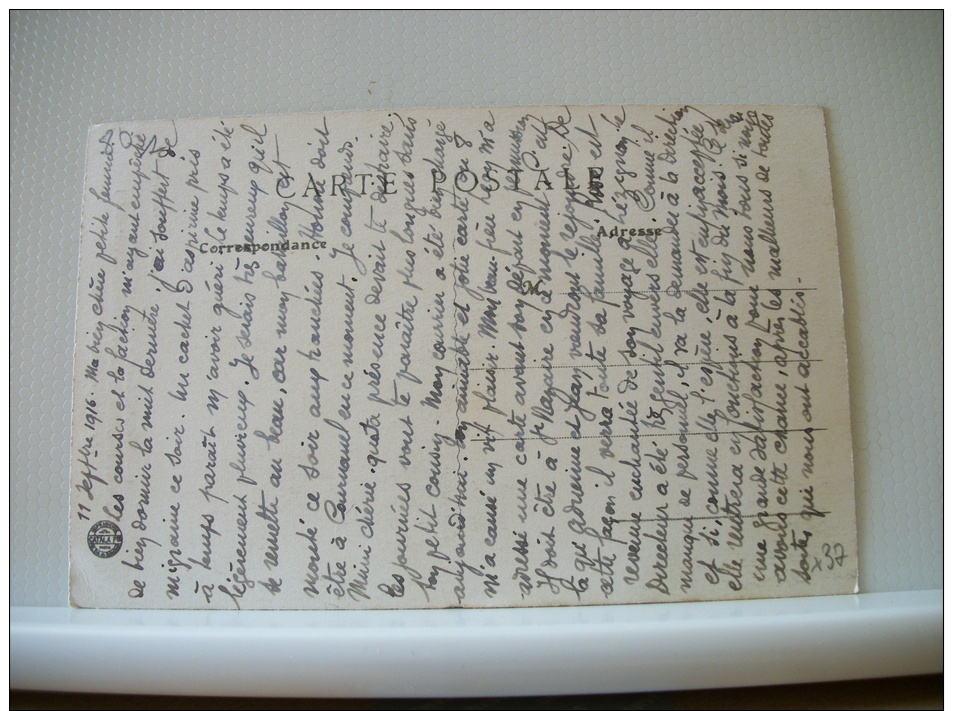 CARTE POSTALE
Correspondance
Adresse
11 Septbre 1916. Ma bien chère petite femme
Les courses et la faction m'ayant empêché
de bien dormir la nuit dernière j'ai souffert de
migraine ce soir. Un cachet d'aspirine pris
à temps paraît m'avoir guéri. Le temps a été
légèrement pluvieux. Je serais très heureux qu'il
se remette au beau, car mon bataillon est
monté ce soir aux tranchées. Voilà doit
être à en ce moment. Je comprends
Mimi chérie que ta présence devait te distraire.
Les journées vont te paraître plus longues sans
ton petit cousin. Mon courrier a été bien chargé
aujourd'hui. Ton aimable et jolie carte du 8
m'a causé un vif plaisir. Mon beau-père Henry m'a
adressé une carte avant son départ en permission
Il doit être à St Nazaire en ce moment. C'est
là que Adrienne et Jean viendront le rejoindre. De
cette façon il verra toute sa famille. est
revenue enchantée de son voyage à . Le
Directeur a été très gentil envers elle. Comme il
manque de personnel, il va la demander à la direction
et si, comme elle l'espère, elle est acceptée
elle rentrera en fonctions à la fin du mois. C'est
une grande satisfaction pour nous tous si nous
avons cette chance, après les malheurs de toutes
sortes qui nous ont accablés.
x37